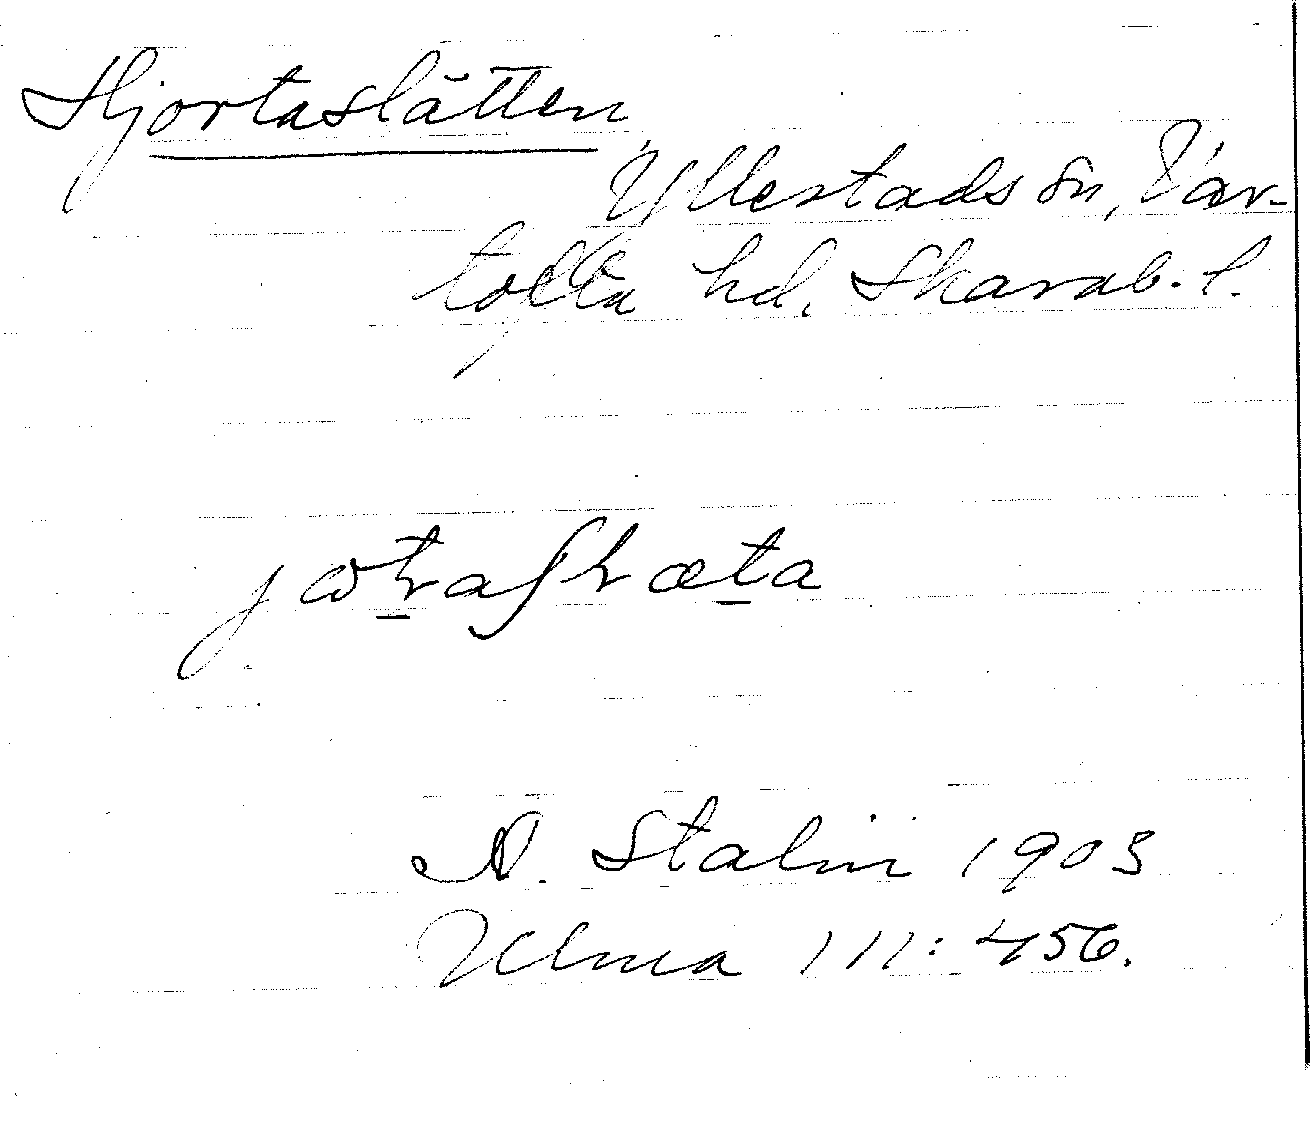 Hjortaslätten
Yllestads sn, Var-
tofta hd, Skarab. l.
N. Stalin 1903
Ulma 111:456.